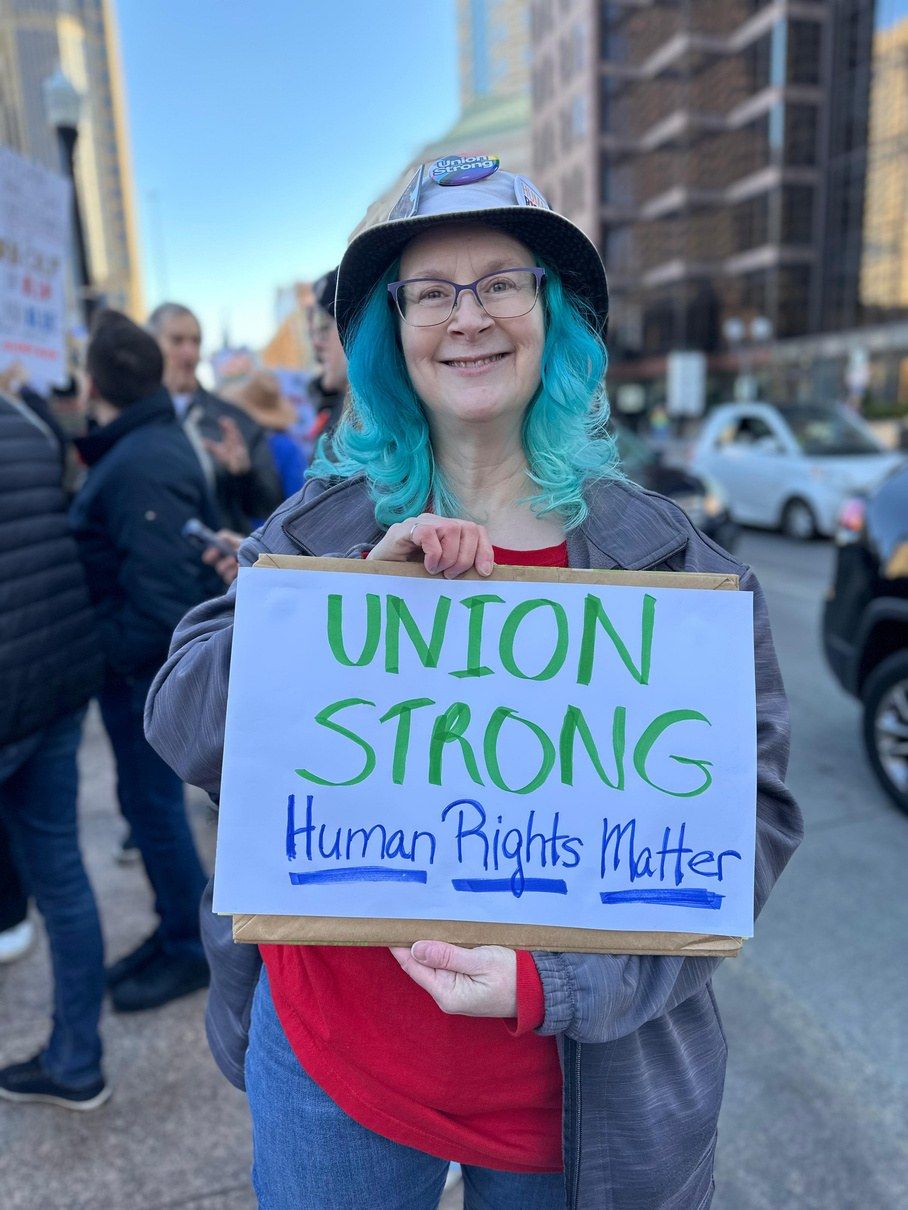 Union
Strong
UNION
STRONG
Human Rights Matter